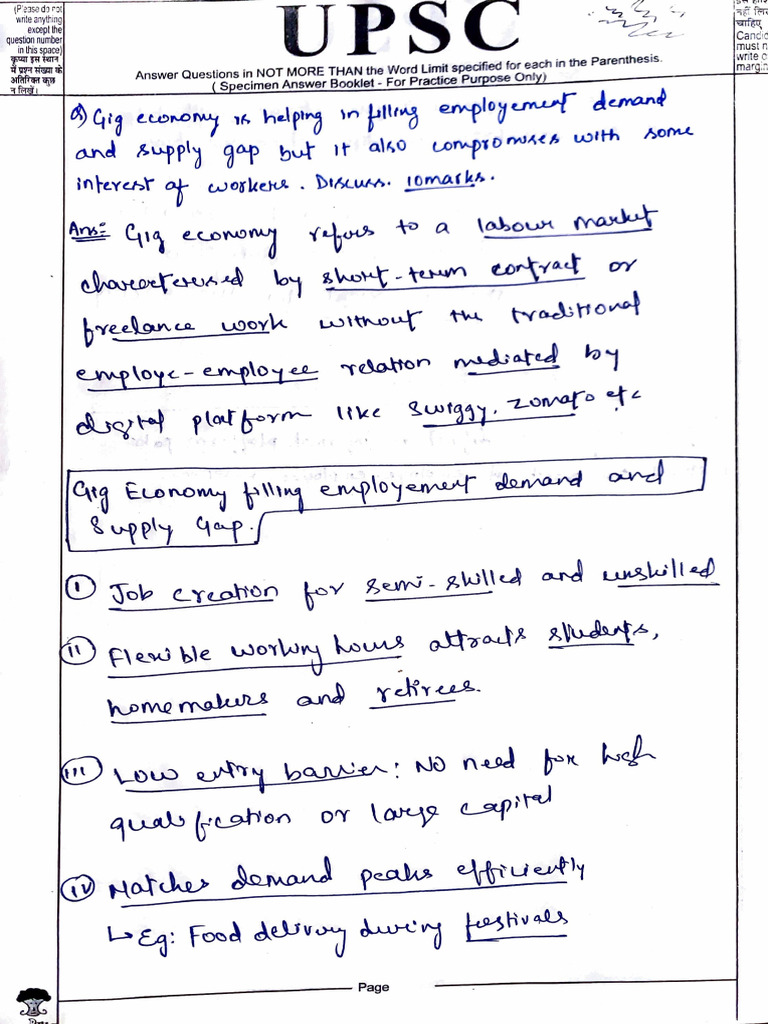 (Please do not
write anything
except the
question number
in this space)
कृपया इस स्थान
में प्रश्न संख्या के
अतिरिक्त कुछ
न लिखें।
UPSC
Answer Questions in NOT MORE THAN the Word Limit specified for each in the Parenthesis.
( Specimen Answer Booklet - For Practice Purpose Only)
नहीं लिख
चाहिए
Candid
must n
write o
margin
Q) Gig economy is helping in filling employement demand
and supply gap but it also compromises with some
interest of workers. Discuss. 10marks.
Ans:- Gig economy refers to a labour market
characterised by short-term contract or
freelance work without the traditional
employe-employee relation mediated by
digital platform like Swiggy, Zomato etc
Gig Economy filling employement demand and
Supply Gap.
(i) Job creation for semi-skilled and unskilled
(ii) Flexible working hours attracts students,
homemakers and retirees.
(iii) Low entry barrier: NO need for high
qualification or large capital
(iv) Matches demand peaks efficiently
↳ Eg: Food delivery during festivals
Page